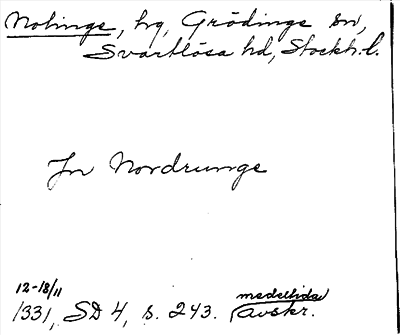 Nolinge, hg, Grödinge sn,
Svartlösa hd, Stockh. l.
Jn Nordrunge
12-18/11
1331, SD 4, s. 243. (medeltida
avskr.